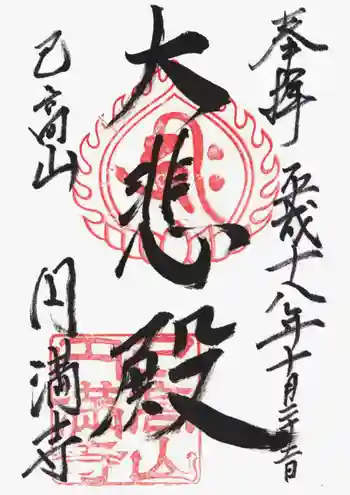 奉拝 平成十八年十月二十一日
大悲殿
己高山
円満寺